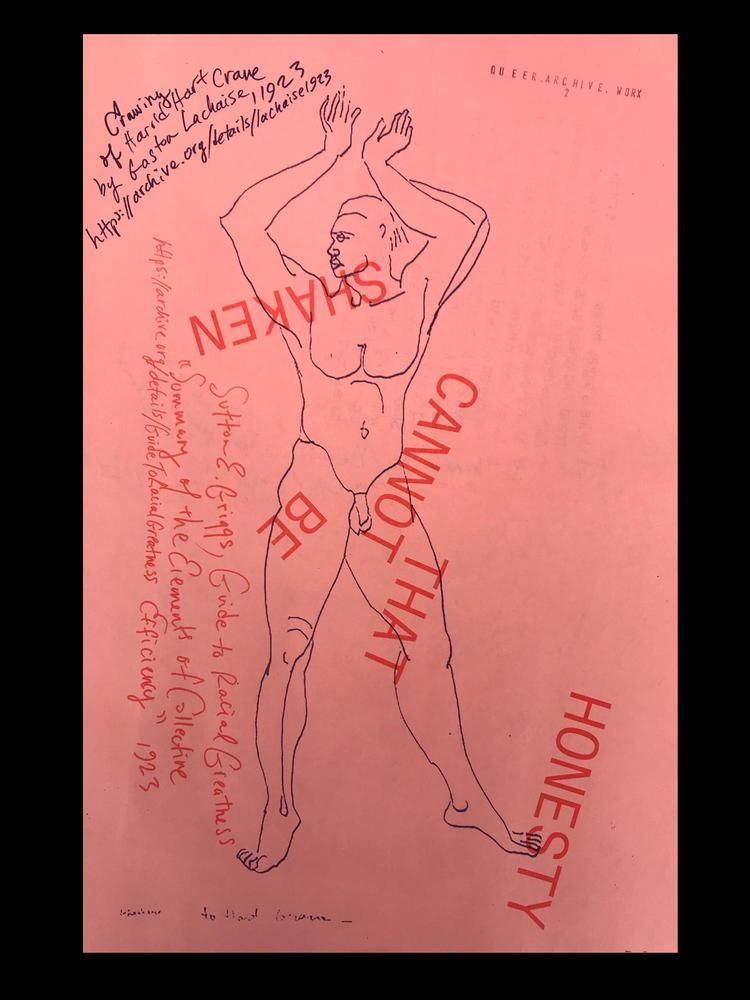 Drawing
of Harold Hart Crane
by Gaston Lachaise, 1923
https://archive.org/details/lachaise1923
QUEER.ARCHIVE.WORK
2
HONESTY
THAT
CANNOT
BE
SHAKEN
Sutton E. Griggs, Guide to Racial Greatness
"Summary of the Elements of Collective
Efficiency" 1923
https://archive.org/details/GuideToRacialGreatness
to Hart Crane —